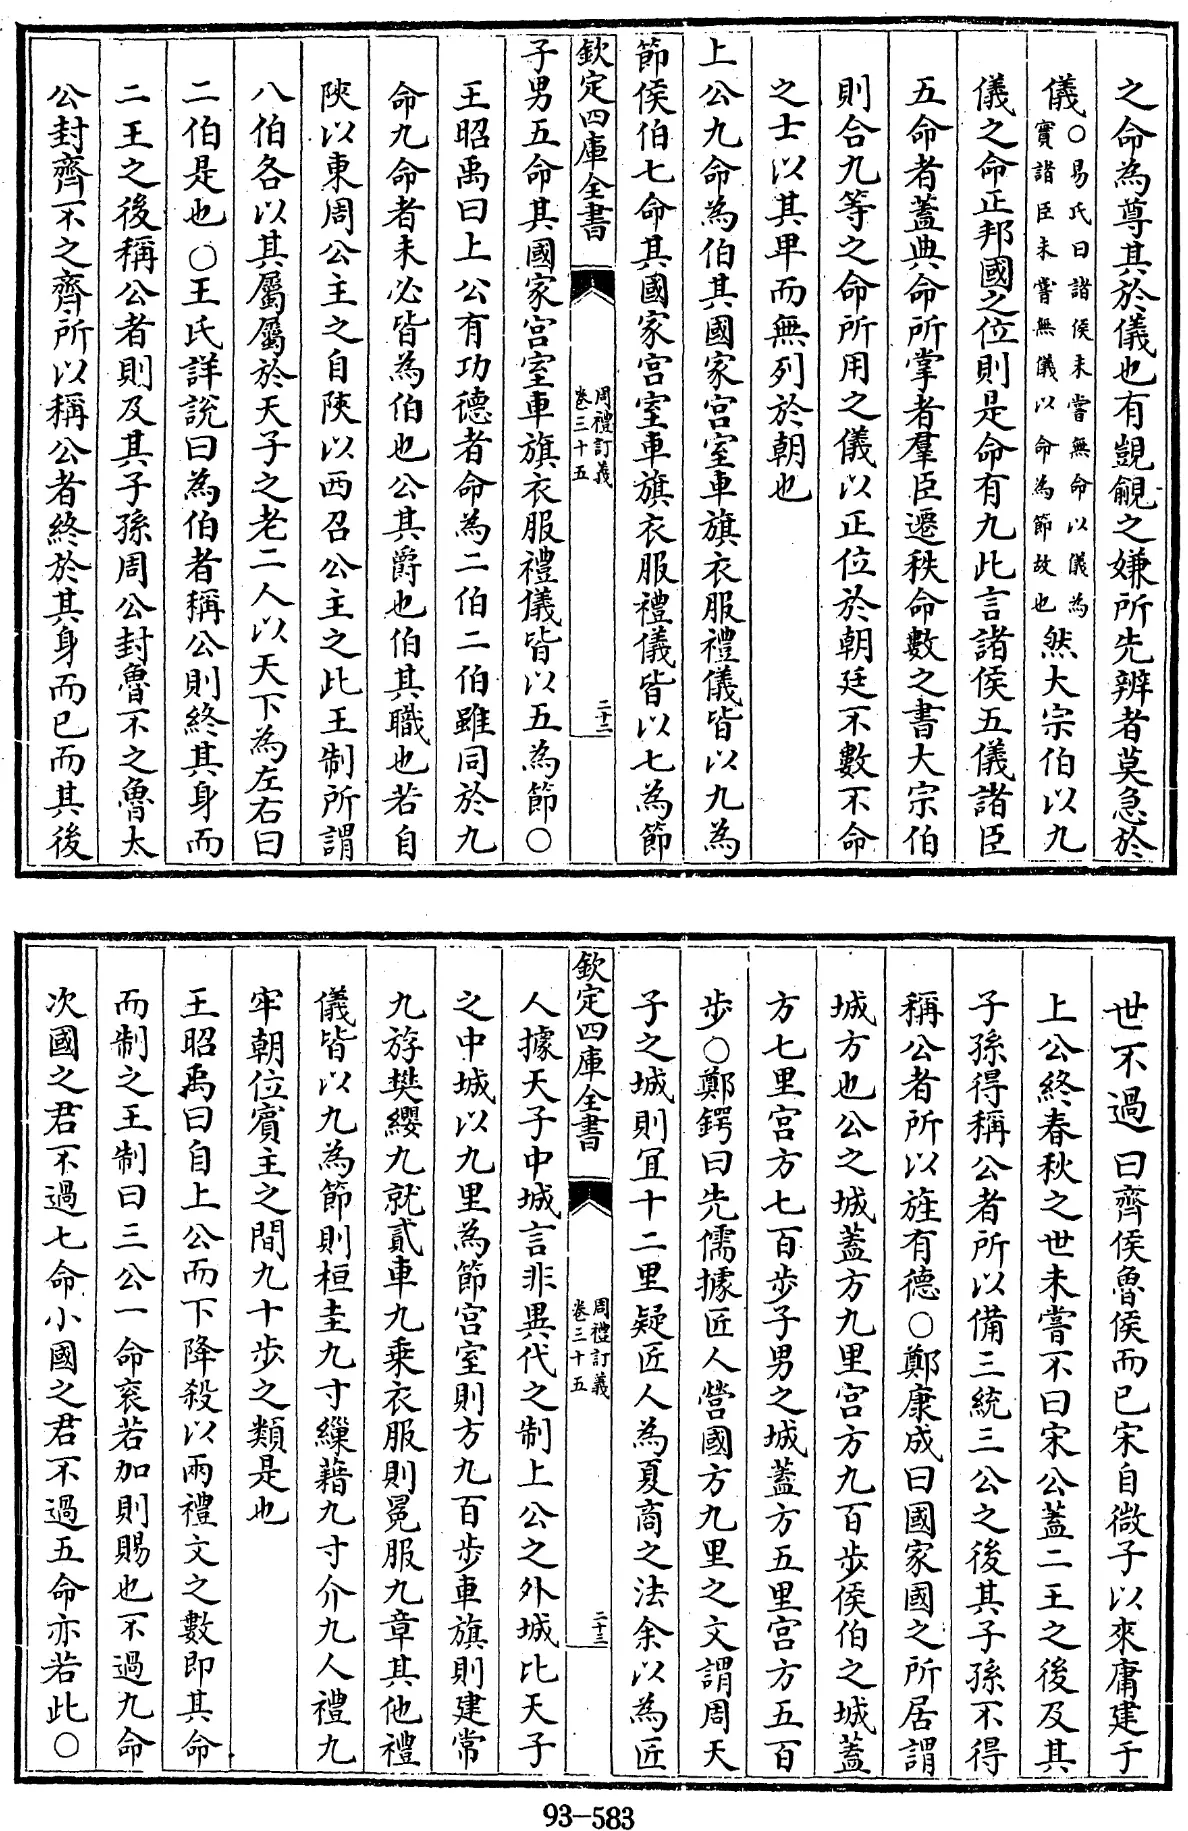 之命為尊其於儀也有覬覦之嫌所先辨者莫急於
儀○易氏曰諸侯未嘗無命以儀為
實諸臣未嘗無儀以命為節故也然大宗伯以九
儀之命正邦國之位則是命有九此言諸侯五儀諸臣
五命者蓋典命所掌者羣臣遷秩命數之書大宗伯
則合九等之命所用之儀以正位於朝廷不數不命
之士以其卑而無列於朝也
上公九命為伯其國家宮室車旗衣服禮儀皆以九為
節侯伯七命其國家宮室車旗衣服禮儀皆以七為節
欽定四庫全書
周禮訂義
卷三十五
二十二
子男五命其國家宮室車旗衣服禮儀皆以五為節○
王昭禹曰上公有功德者命為二伯二伯雖同於九
命九命者未必皆為伯也公其爵也伯其職也若自
陝以東周公主之自陝以西召公主之此王制所謂
八伯各以其屬屬於天子之老二人以天下為左右曰
二伯是也○王氏詳說曰為伯者稱公則終其身而
二王之後稱公者則及其子孫周公封魯不之魯太
公封齊不之齊所以稱公者終於其身而已而其後
世不過曰齊侯魯侯而已宋自微子以來庸建于
上公終春秋之世未嘗不曰宋公蓋二王之後及其
子孫得稱公者所以備三統三公之後其子孫不得
稱公者所以旌有德○鄭康成曰國家國之所居謂
城方也公之城蓋方九里宮方九百步侯伯之城蓋
方七里宮方七百步子男之城蓋方五里宮方五百
步○鄭鍔曰先儒據匠人營國方九里之文謂周天
子之城則宜十二里疑匠人為夏商之法余以為匠
欽定四庫全書
周禮訂義
卷三十五
二十三
人據天子中城言非異代之制上公之外城比天子
之中城以九里為節宮室則方九百步車旗則建常
九斿樊纓九就貳車九乘衣服則冕服九章其他禮
儀皆以九為節則桓圭九寸繅藉九寸介九人禮九
牢朝位賓主之間九十步之類是也
王昭禹曰自上公而下降殺以兩禮文之數即其命
而制之王制曰三公一命衮若加則賜也不過九命
次國之君不過七命小國之君不過五命亦若此○
93-583